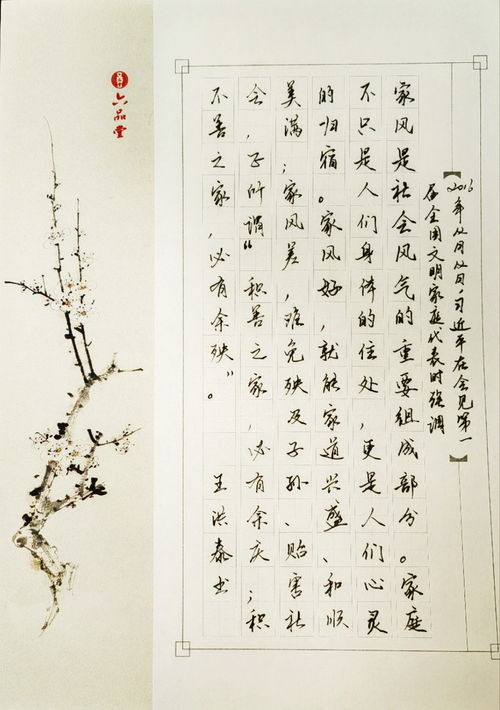 【2016年12月12日，习近平在会见第一
届全国文明家庭代表时强调】
家风是社会风气的重要组成部分。家庭
不只是人们身体的住处，更是人们心灵
的归宿。家风好，就能家道兴盛、和顺
美满；家风差，难免殃及子孙、贻害社
会，正所谓“积善之家，必有余庆；积
不善之家，必有余殃”。 王洪泰书
六品堂